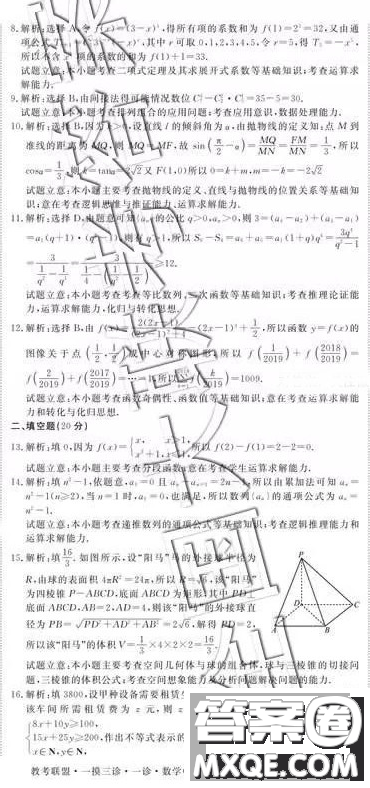 8.解析:选择A,令f(x)=(3-x)⁵,得所有项的系数和为f(1)=2⁵=32,又由通
项公式 ,其中r可取0,1,2,3,4,5,令r=5,得T₆=-x⁵,
所以不含x⁵项的系数的和为f(1)+1=33.
试题立意:本小题考查二项式定理及其求展开式系数等基础知识;考查运算求
解能力.
9.解析:选择B,由间接法得可能情况数位C³₇-C²₅·C¹=35-5=30.
试题立意:本小题考查排列组合的应用问题;考查应用意识,数据处理能力.
10.解析:选择B,因为k>0,设直线l的倾斜角为α,由抛物线的定义知:点M到
准线的距离为MQ,则MQ=MF,故sin(π/2-α)=MQ/MN=FM/MN=1/3,所以
cosα=1/3,则k=tanα=2√2 又F(1,0)所以0=k+m,m=-k=-2√2
试题立意:本小题主要考查抛物线的定义、直线与抛物线的位置关系等基础知
识;意在考查逻辑思维与推证能力、运算求解能力.
11.解析:选择D,由题意可知{aₙ}的公比q>0,aₙ>0,则3=(a₄-a₂)+(a₃-a₁)
=a₁(q+1)· ,则有q>1,所以S₆-S₄=a₅+a₆=a₁(1+q)q⁴=3q⁴/(q²-1)
≥12.
试题立意:本小题考查考查等比数列、二次函数等基础知识;考查推理论证能
力,运算求解能力,化归与转化思想.
12.解析:选择B,由f(x)= (2x-1)³+1/2,所以函数y=f(x)的
图像关于点(1/2,1/2)成中心对称图形,所以f(1/2019)+f(2018/2019)=
f(2/2019)+f(2017/2019)=…=1,所以 f(k/2019)=1009.
试题立意:本小题考查函数奇偶性、函数值等基础知识;意在考查运算求解能
力和转化与化归思想.
二、填空题(20分)
13.解析:填0,因为f(x)={x, x>1, x²+1,x≤1,所以f(2)-f(1)=2-2=0.
试题立意:本小题主要考查分段函数;意在考查学生运算求解能力.
14.解析:填n²-1,依题意,a₁=0且aₙ-aₙ₋₁=2n-1,所以由累加法可知aₙ=
n²-1(n≥2),当n=1时,a₁=0,也满足,所以数列{aₙ}的通项公式为aₙ=
n²-1.
试题立意:本小题考查递推数列的通项公式等基础知识;考查逻辑推理能力和
运算求解能力.
15.解析:填16/3.如图所示,设“阳马”的外接球半径为
R,由球的表面积4πR²=24π,所以R=√6,该“阳马”
为四棱锥P-ABCD,底面ABCD为矩形,其中PD⊥
底面ABCD,AB=2,AD=4,则该“阳马”的外接球直
径为PB=√(PD²+AD²+AB²)=2√6,解得PD=2,
所以该“阳马”的体积V=1/3×4×2×2=16/3.
P
D
C
A
B
试题立意:本小题主要考查空间几何体与球的组合体,球与三棱锥的切接问
题,三棱锥的体积公式;考查空间想象能力及分析问题解决问题的能力.
16.解析:填3800,设甲种设备需要租赁
该车间所需租赁费为z元,则z
8x+10y≥100,
15x+25y≥200,作出不等式表示的
x∈N,y∈N,
教考联盟·一摸三诊·一诊·数学
答案圈
MXQE.COM